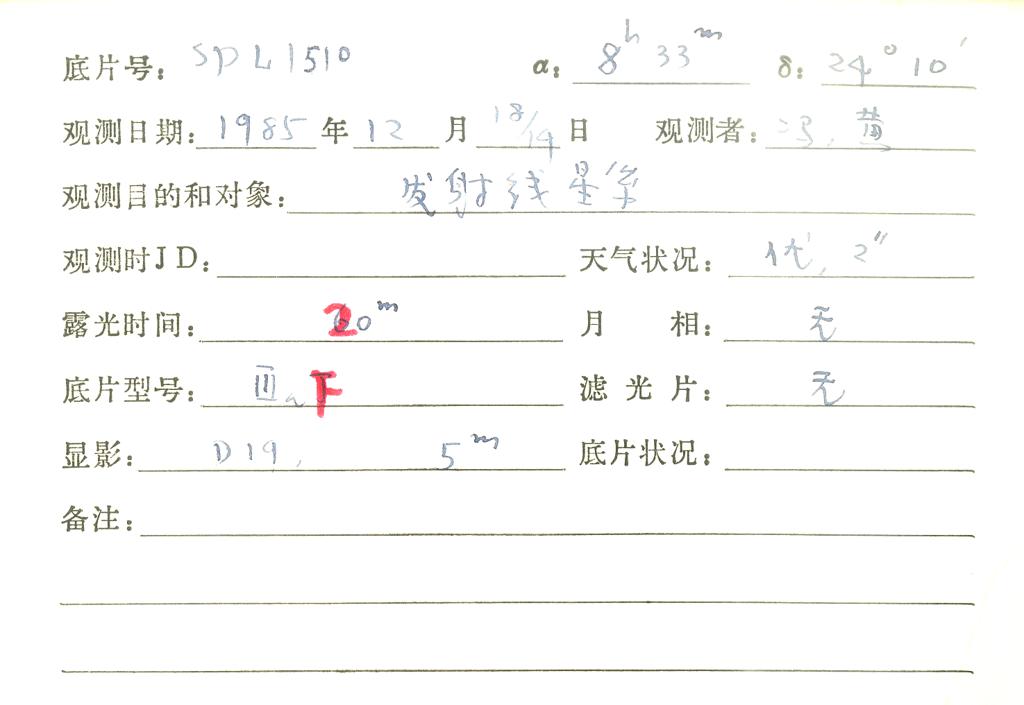 底片号: SPL1510 α: 8h 33m δ: 24° 10′
观测日期: 1985 年 12 月 18/19 日 观测者: 冯, 黄
观测目的和对象: 发射线星系
观测时JD: 天气状况: 优, 2″
露光时间: 20m 月 相: 无
底片型号: IIIaF 滤 光 片: 无
显影: D19, 5m 底片状况:
备注: